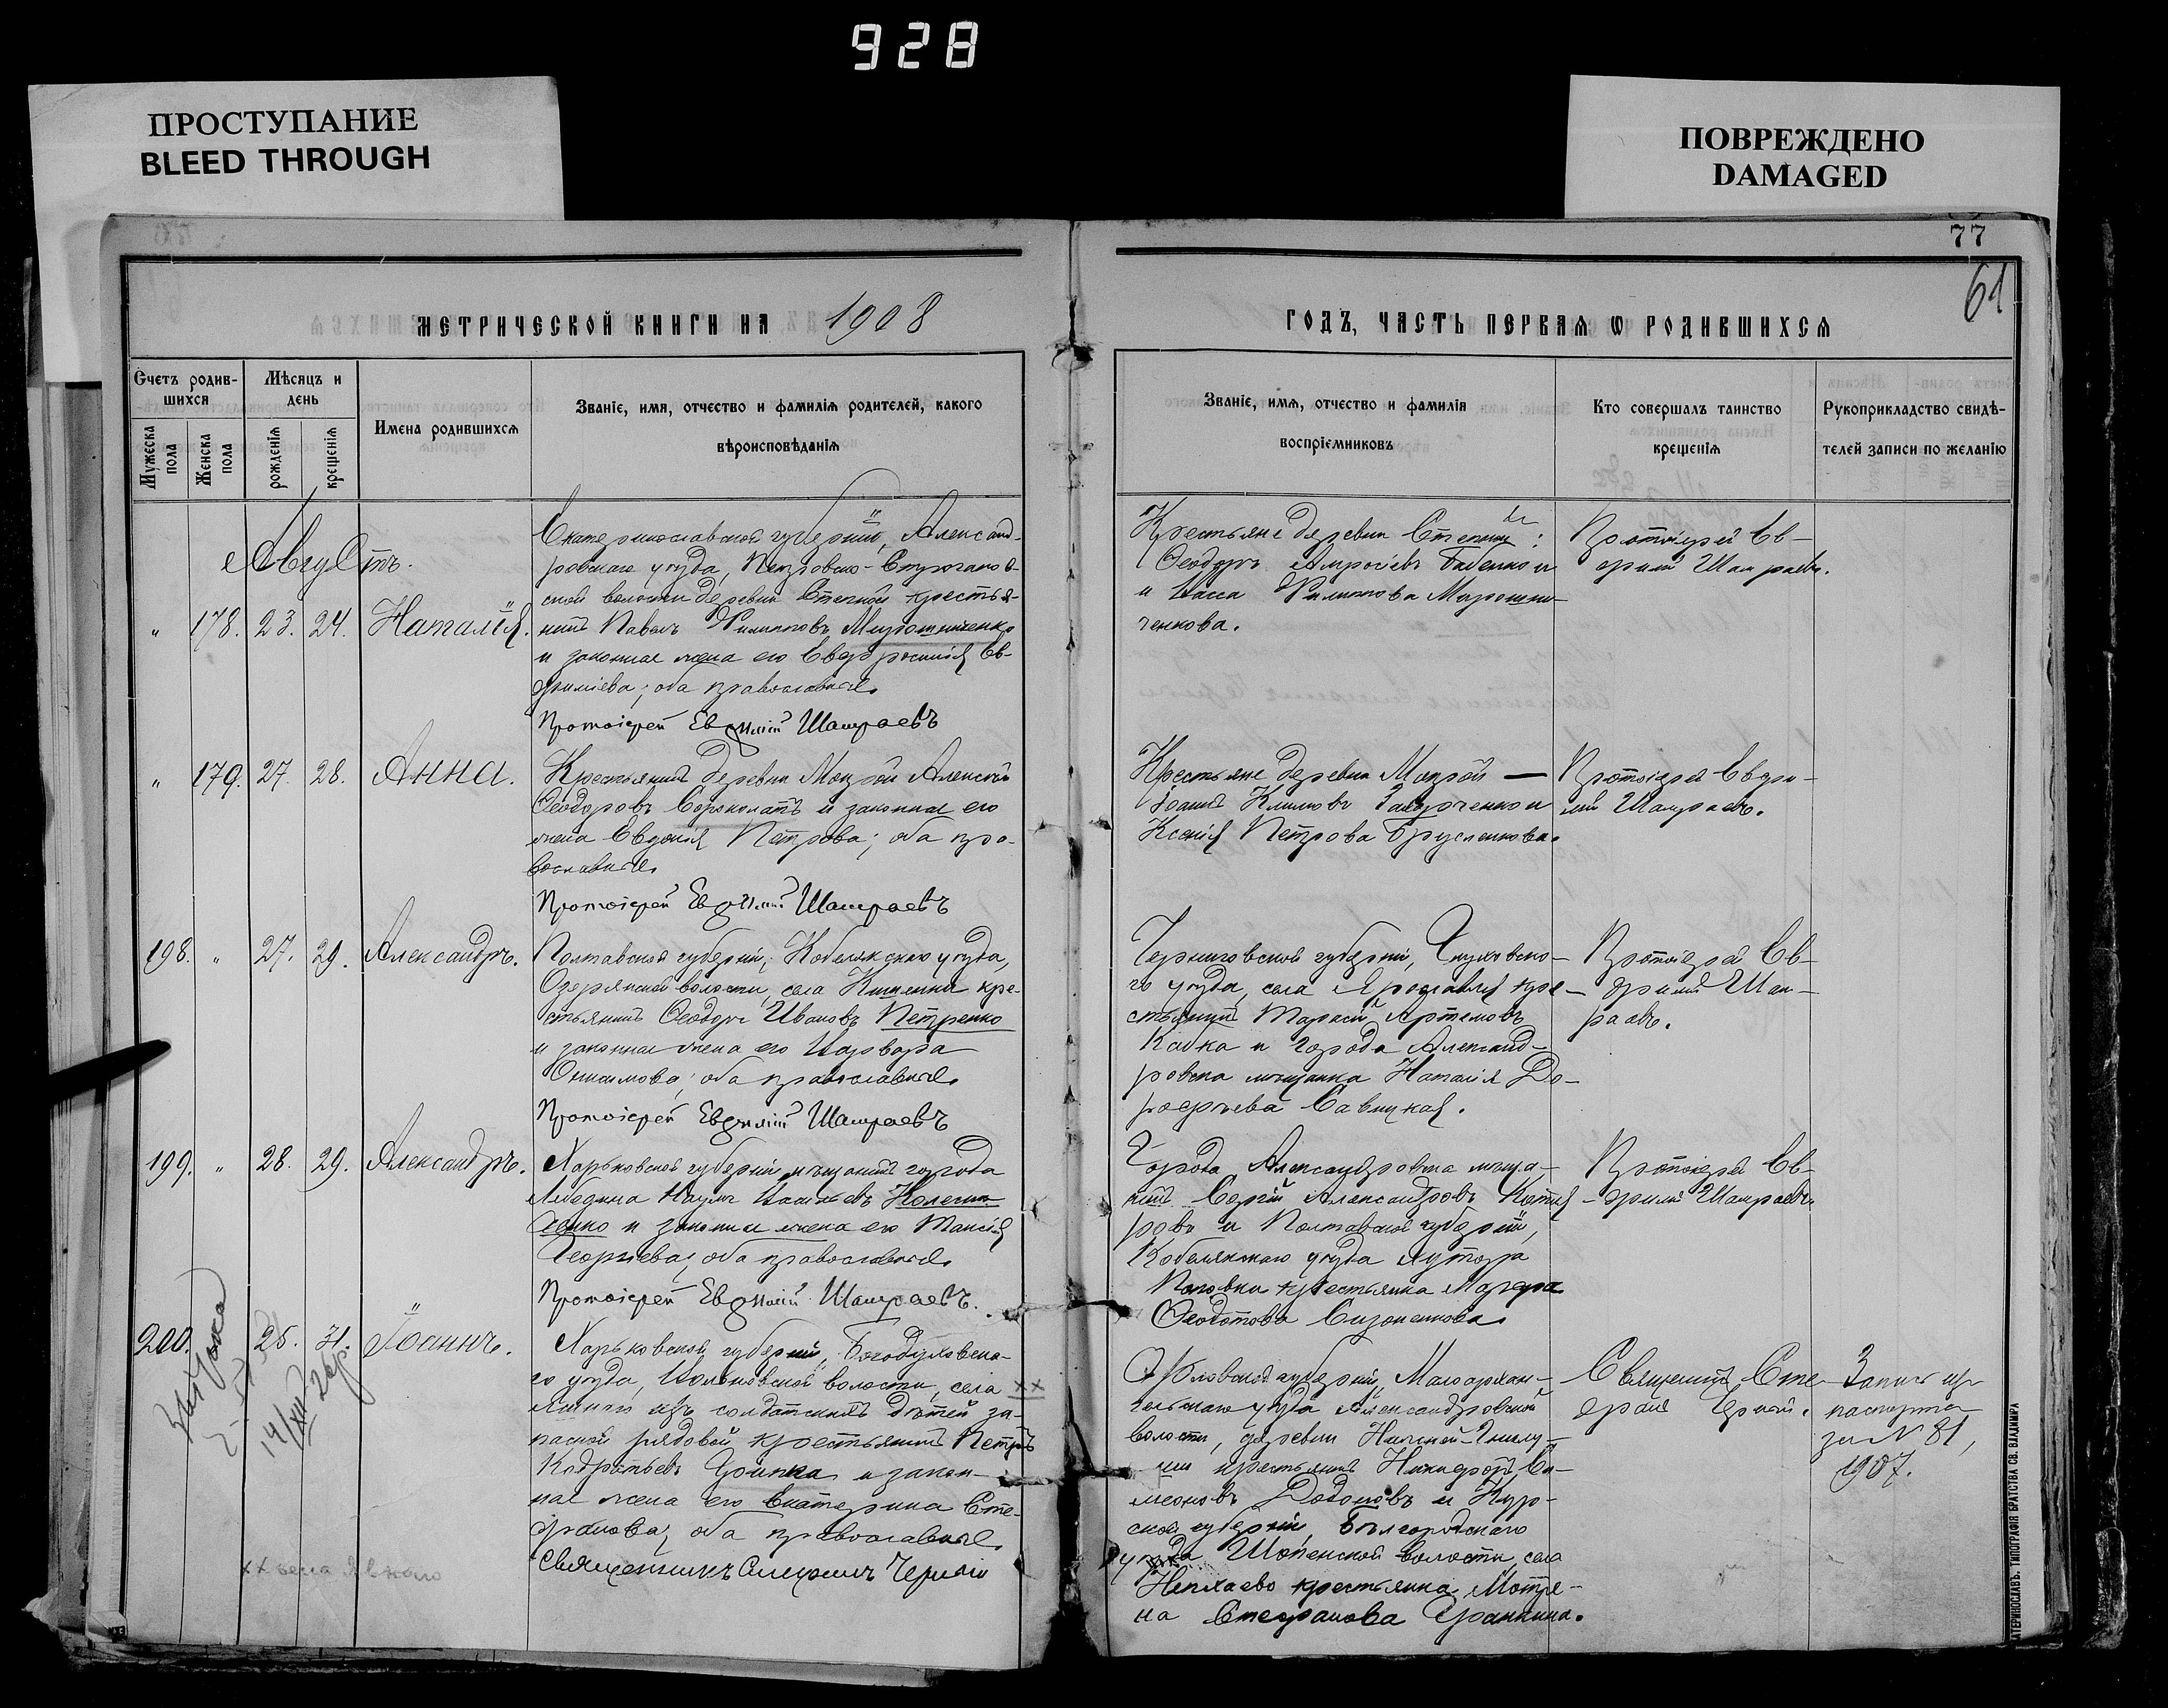 928
ПРОСТУПАНИЕ
BLEED THROUGH
ПОВРЕЖДЕНО
DAMAGED
77
61
МЕТРИЧЕСКОЙ КНИГИ НА 1908
ГОДЪ, ЧАСТЬ ПЕРВАЯ Ѡ РОДИВШИХСЯ
Счетъ родив-
шихся
Мужеска пола
Женска пола
Мѣсяцъ и
день
рожденія
крещенія
Имена родившихся
Званіе, имя, отчество и фамилія родителей, какого
вѣроисповѣданія
Званіе, имя, отчество и фамилія
воспріемниковъ
Кто совершалъ таинство
крещенія
Рукоприкладство свидѣ-
телей записи по желанію
Августъ.
„ 178. 23. 24. Наталія.
Екатеринославской губерніи, Александ-
ровскаго уѣзда, Петровско-
ской волости деревни Степной крестья-
нинъ Павелъ Филипповъ Мирошниченко
и законная жена его Евфросинія Ев-
фиміева; оба православные.
Протоіерей Евфимій Шамраевъ
Крестьяне деревни Степной:
Ѳеодоръ Бабенко
и Васса Филиппова Мирошни-
ченкова.
Протоіерей Ев-
фимій Шамраевъ.
„ 179. 27. 28. Анна.
Крестьянинъ деревни Мокрой Алексій
Ѳеодоровъ Сороколатъ и законная его
жена Евдокія Петрова; оба пра-
вославные.
Протоіерей Евфимій Шамраевъ
Крестьяне деревни Мокрой —
Іоаннъ Климовъ
Ксенія Петрова Брусленкова.
Протоіерей Евфи-
мій Шамраевъ.
198. „ 27. 29. Александръ.
Полтавской губерніи, Кобелякскаго уѣзда,
Озерянской волости, села Кишенки кре-
стьянинъ Ѳеодоръ Ивановъ Петренко
и законная жена его Варвара
Онисимова; оба православные.
Протоіерей Евфимій Шамраевъ
Черниговской губерніи,
го уѣзда, села Ярославля кре-
стьянинъ Тарасій Артемовъ
и города Александ-
ровска мѣщанка Наталія До-
роѳеева Савицкая.
Протоіерей Ев-
фимій Шам-
раевъ.
199. „ 28. 29. Александръ.
Харьковской губерніи мѣщанинъ города
Лебедина Наумъ Васильевъ Колесни-
ченко и законная жена его Таисія
Георгіева; оба православные.
Протоіерей Евфимій Шамраевъ.
Города Александровска мѣща-
нинъ Сергій Александровъ
ровъ и Полтавской губерніи,
Кобелякскаго уѣзда хутора
Поповки крестьянка Марѳа
Ѳеодотова
Протоіерей Ев-
фимій Шамраевъ.
200. 25. 31. Іоаннъ.
14/XII 26 г.
Харьковской губерніи, Богодуховска-
го уѣзда, волости, села хх
изъ солдатскихъ дѣтей за-
пасной рядовой крестьянинъ Петръ
Кодратьевъ и закон-
ная жена его Екатерина Сте-
фанова; оба православные.
Священникъ Стефанъ Черный
Орловской губерніи, Малоархан-
гельскаго уѣзда Александровской
волости, деревни
крестьянинъ Никифоръ Си-
меоновъ Додоновъ и Кур-
ской губерніи, Бѣлгородскаго
уѣзда Шопенской волости, села
Непхаево крестьянка Матре-
на Стефанова
Священникъ Сте-
фанъ Черный.
Запись изъ
паспорта
за № 81,
1907.
хх села
ТИПОГРАФІЯ БРАТСТВА СВ. ВЛАДИМІРА